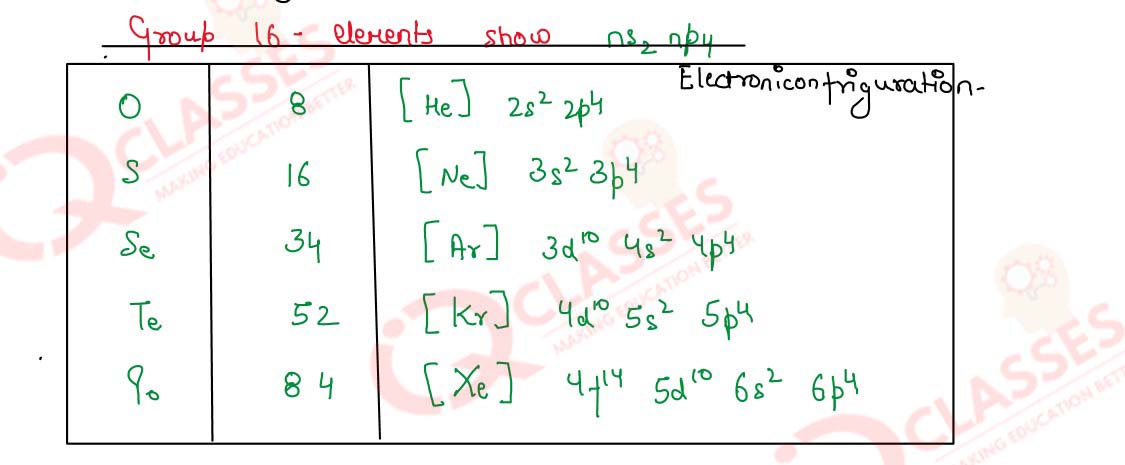 Group 16 - elements show ns₂ np₄
Electroniconfriguration-
O 8 [He] 2s² 2p⁴
S 16 [Ne] 3s² 3p⁴
Se 34 [Ar] 3d¹⁰ 4s² 4p⁴
Te 52 [Kr] 4d¹⁰ 5s² 5p⁴
Po 84 [Xe] 4f¹⁴ 5d¹⁰ 6s² 6p⁴
IQ CLASSES
MAKING EDUCATION BETTER
IQ CLASSES
MAKING EDUCATION BETTER
CLASSES
MAKING EDUCATION BETT